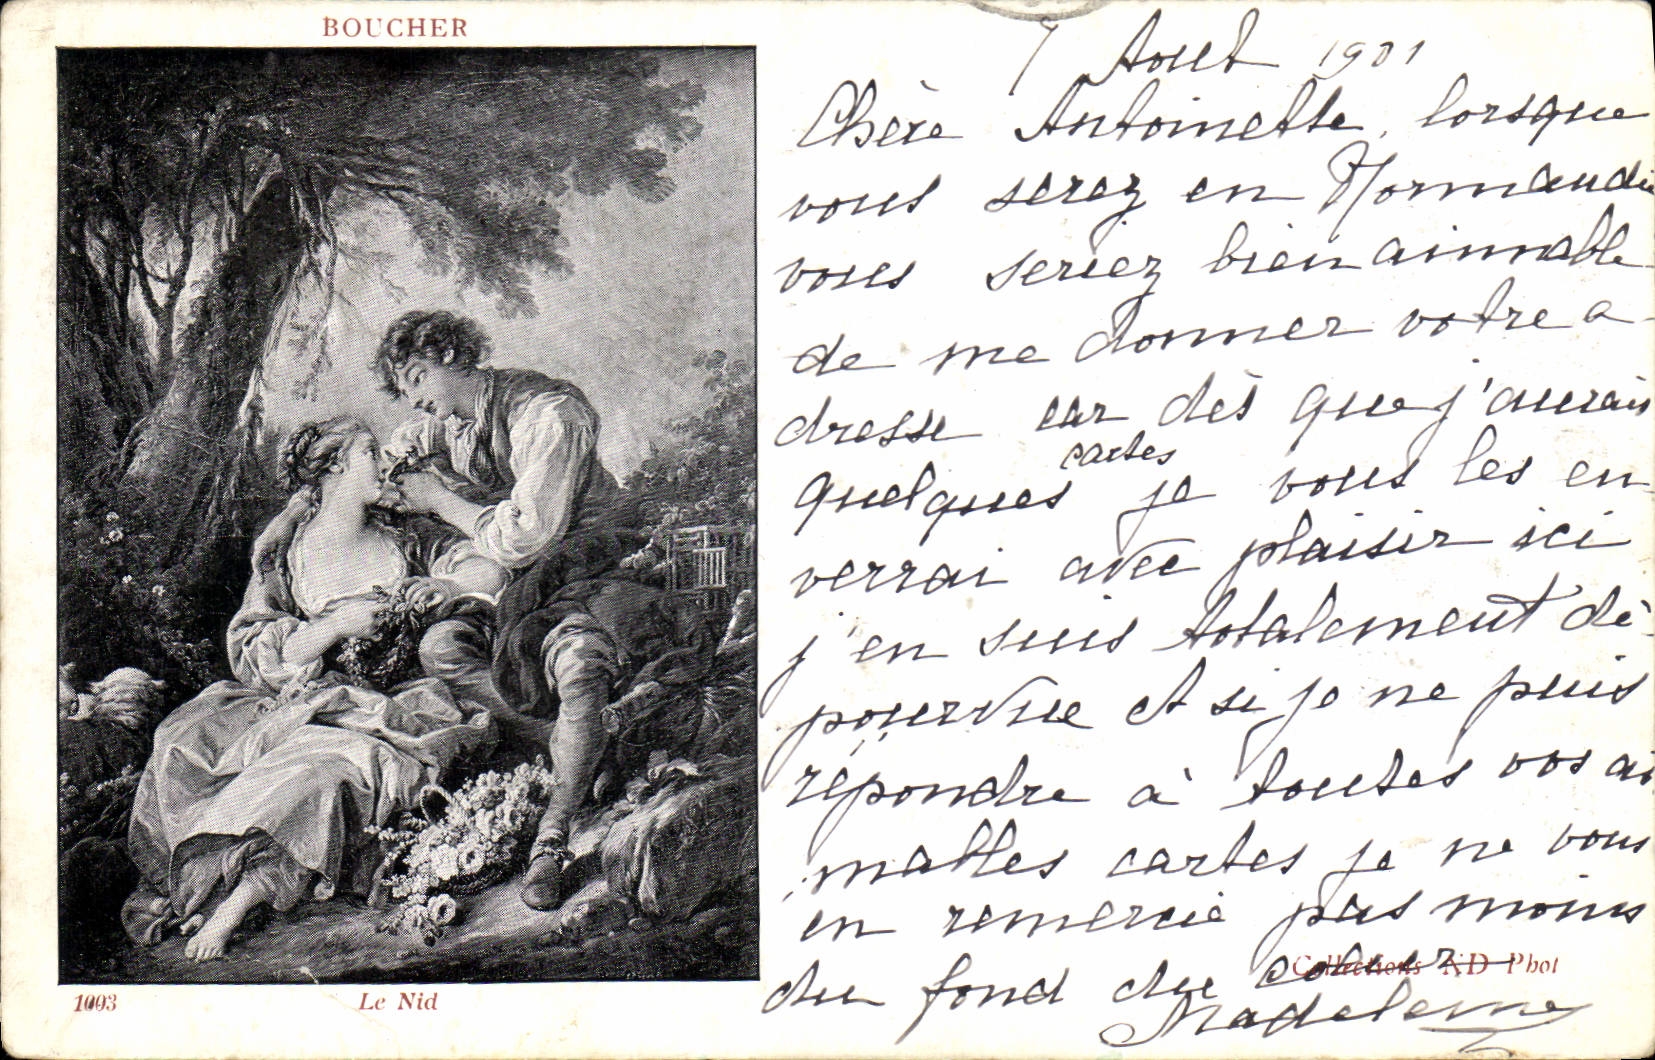 BOUCHER
7 Aout 1901
Chère Antoinette, lorsque
vous serez en Normandie
vous seriez bien aimable
de me donner votre a-
dresse car dès que j'aurais
quelques cartes je vous les en-
verrai avec plaisir ici
j'en suis totalement dé-
pourvue et si je ne puis
répondre à toutes vos ai
mables cartes je ne vous
en remercie pas moins
du fond du coeur
Collections ND Phot
Madeleine
1003
Le Nid